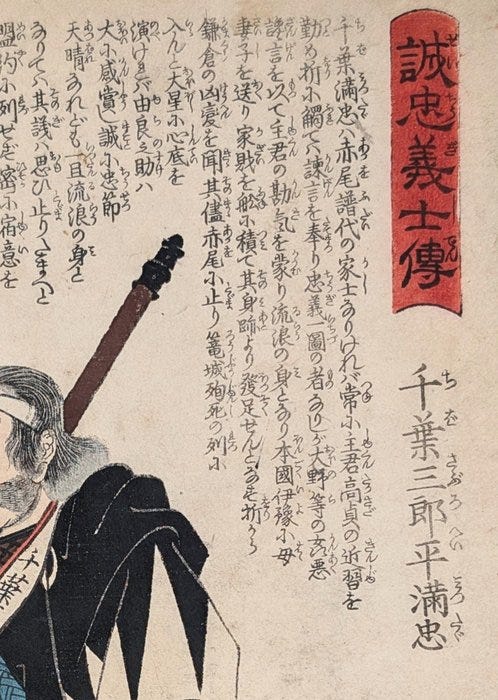 誠忠義士傳
千葉三郎平満忠
千葉満忠ハ赤尾譜代の家士なりけれバ常に主君高貞の近習を
勤め折に觸てハ諫言を奉り忠義一圖の者なりしが大野等の奸悪
讒言を以て主君の勘氣を蒙り流浪の身となり本國伊豫に母
妻子を送り家財を舩に積て其身跡より發足せんとなす折から
鎌倉の凶変を聞其儘赤尾に止り篭城殉死の列に
入んと大星に心底を
演けれバ由良之助ハ
大に感賞し誠に忠節
天晴なれども一旦流浪の身と
なりてハ其議ハ思ひ止り
盟約に列せず密に宿意を
千葉